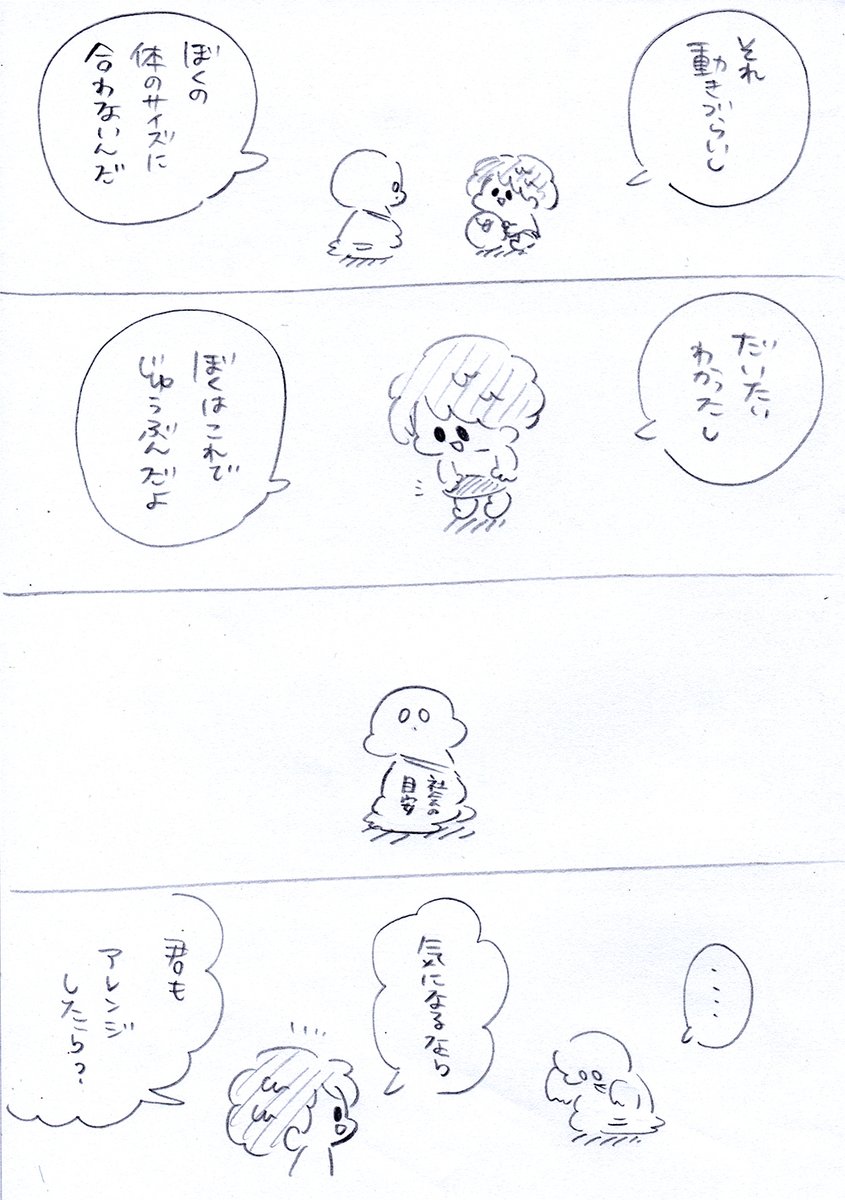 それ
動きづらいし
ぼくの
体のサイズに
合わないんだ
だいたい
わかったし
ぼくはこれで
じゅうぶんだよ
社会の
目安
・・・・
気になるなら
君も
アレンジ
したら?